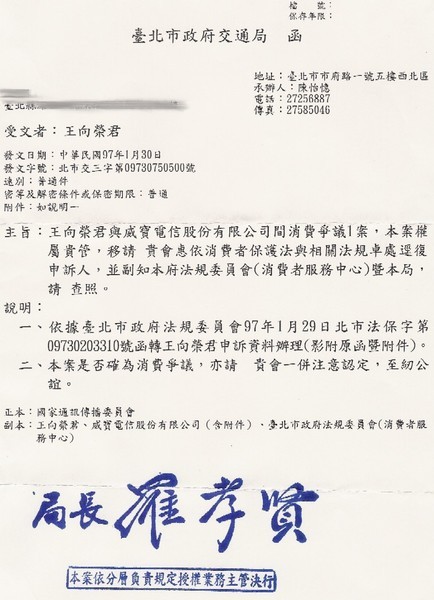 檔　　號：
保存年限：
臺北市政府交通局　函
地址：臺北市市府路一號五樓西北區
承辦人：陳怡憶
電話：27256887
傳真：27585046
臺北縣
受文者：王向榮君
發文日期：中華民國97年1月30日
發文字號：北市交三字第09730750500號
速別：普通件
密等及解密條件或保密期限：普通
附件：如說明一
主旨：王向榮君與威寶電信股份有限公司間消費爭議1案，本案權
屬貴管，移請　貴會惠依消費者保護法與相關法規卓處逕復
申訴人，並副知本府法規委員會(消費者服務中心)暨本局，
請　查照。
說明：
一、依據臺北市政府法規委員會97年1月29日北市法保字第
09730203310號函轉王向榮君申訴資料辦理(影附原函暨附件)。
二、本案是否確為消費爭議，亦請　貴會一併注意認定，至紉公
誼。
正本：國家通訊傳播委員會
副本：王向榮君、威寶電信股份有限公司（含附件）、臺北市政府法規委員會(消費者服
務中心)
局長 羅孝賢
本案依分層負責規定授權業務主管決行